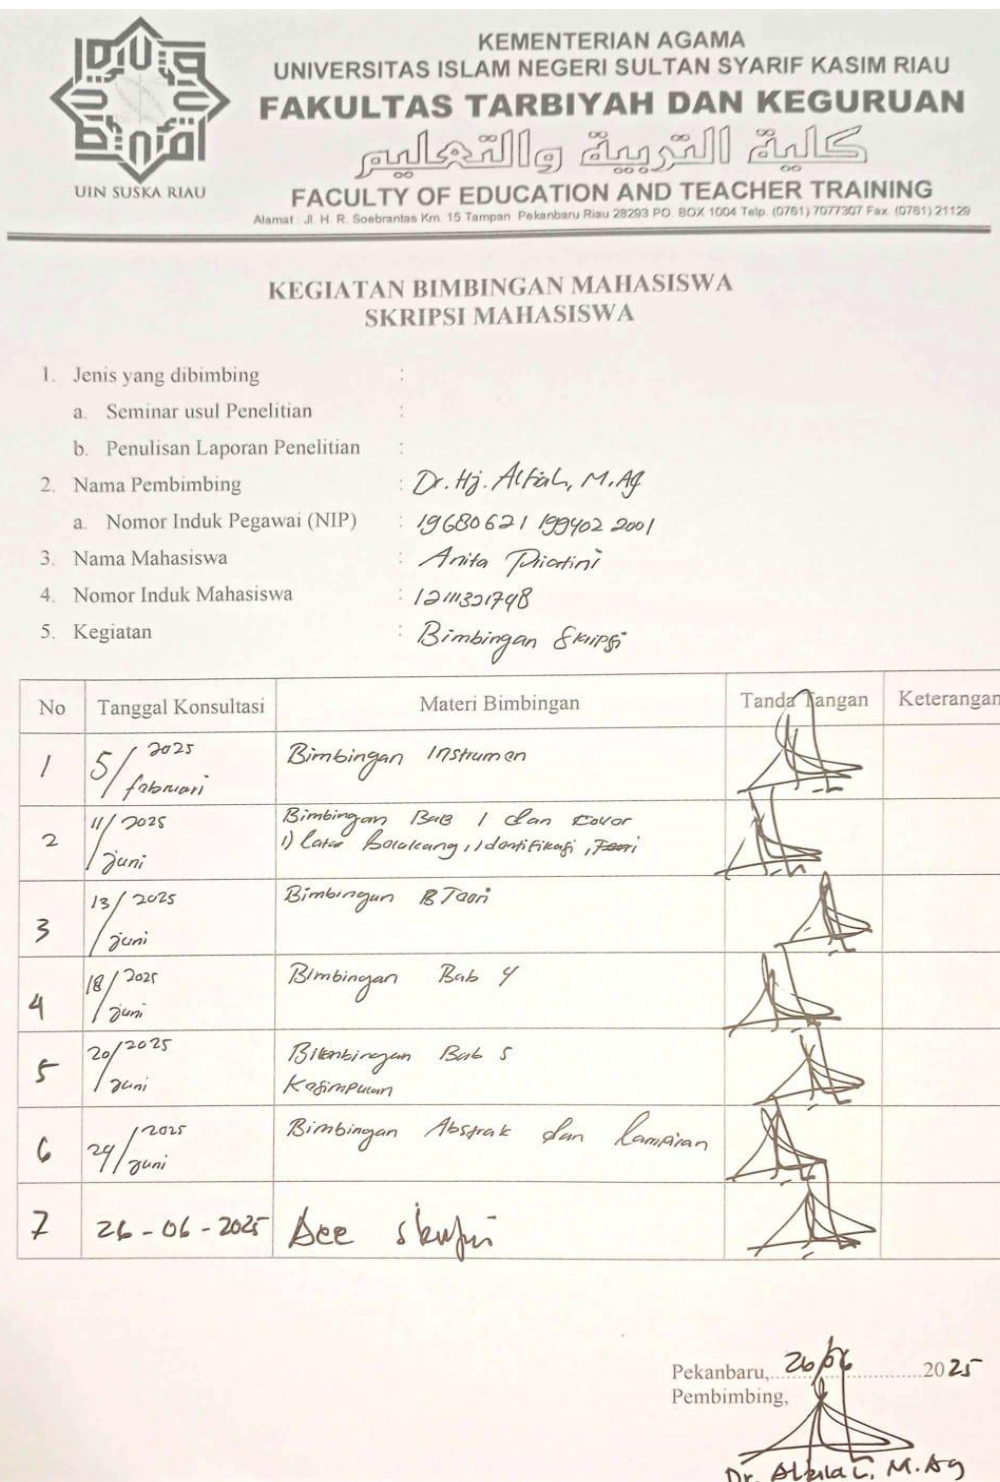 UIN SUSKA RIAU
KEMENTERIAN AGAMA
UNIVERSITAS ISLAM NEGERI SULTAN SYARIF KASIM RIAU
FAKULTAS TARBIYAH DAN KEGURUAN
كلية التربية والتعليم
FACULTY OF EDUCATION AND TEACHER TRAINING
Alamat : Jl. H. R. Soebrantas Km. 15 Tampan Pekanbaru Riau 28293 PO. BOX 1004 Telp. (0761) 7077307 Fax. (0761) 21129
KEGIATAN BIMBINGAN MAHASISWA
SKRIPSI MAHASISWA
1. Jenis yang dibimbing :
a. Seminar usul Penelitian :
b. Penulisan Laporan Penelitian :
2. Nama Pembimbing : Dr. Hj. Alfiah, M.Ag
a. Nomor Induk Pegawai (NIP) : 19680621 199402 2001
3. Nama Mahasiswa : Anita
4. Nomor Induk Mahasiswa :
5. Kegiatan : Bimbingan Skripsi
No Tanggal Konsultasi Materi Bimbingan Tanda Tangan Keterangan
1 5/2025 februari Bimbingan Instrumen
2 11/2025 juni Bimbingan Bab 1 dan cover
1) latar belakang, identifikasi, Teori
3 13/2025 juni Bimbingan Teori
4 18/2025 juni Bimbingan Bab 4
5 20/2025 juni Bimbingan Bab 5
Kesimpulan
6 24/2025 juni Bimbingan Abstrak dan lampiran
7 26-06-2025 Acc skripsi
Pekanbaru, 26/06 2025
Pembimbing,
Dr. Alfiah, M.Ag